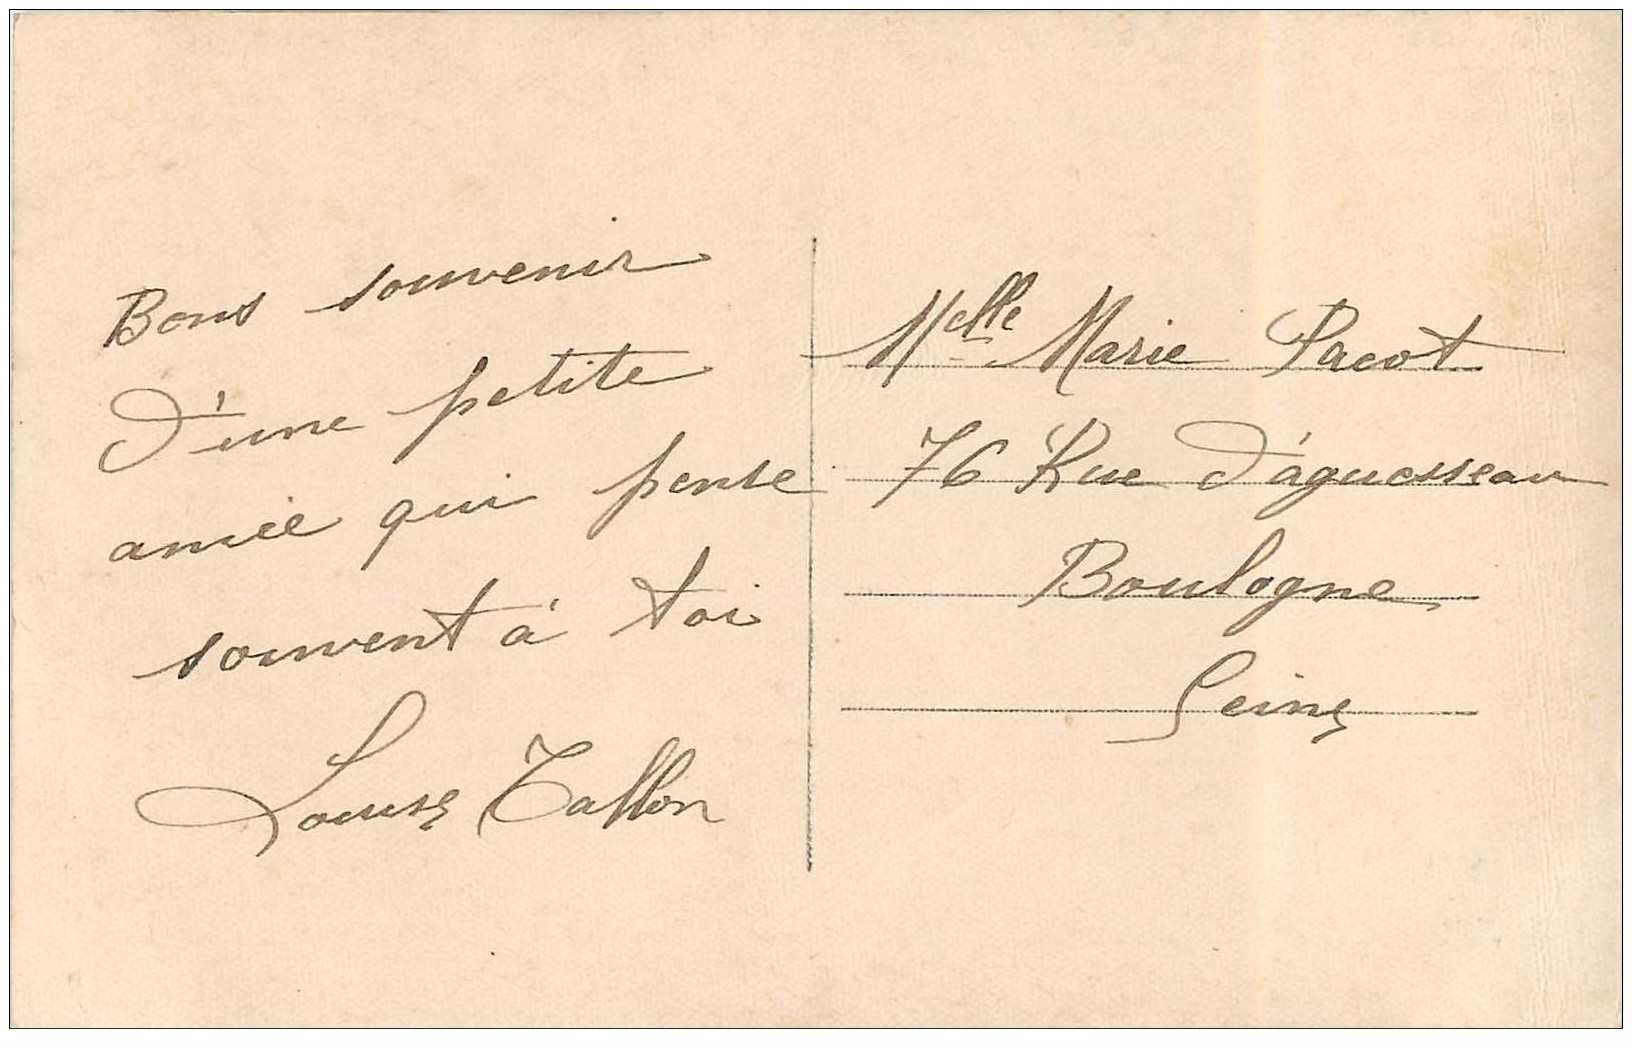 Bons souvenir
d'une petite
amie qui pense
souvent à toi
Louise Tallon
Melle Marie Pacot
76 Rue d'aguesseau
Boulogne
Seine